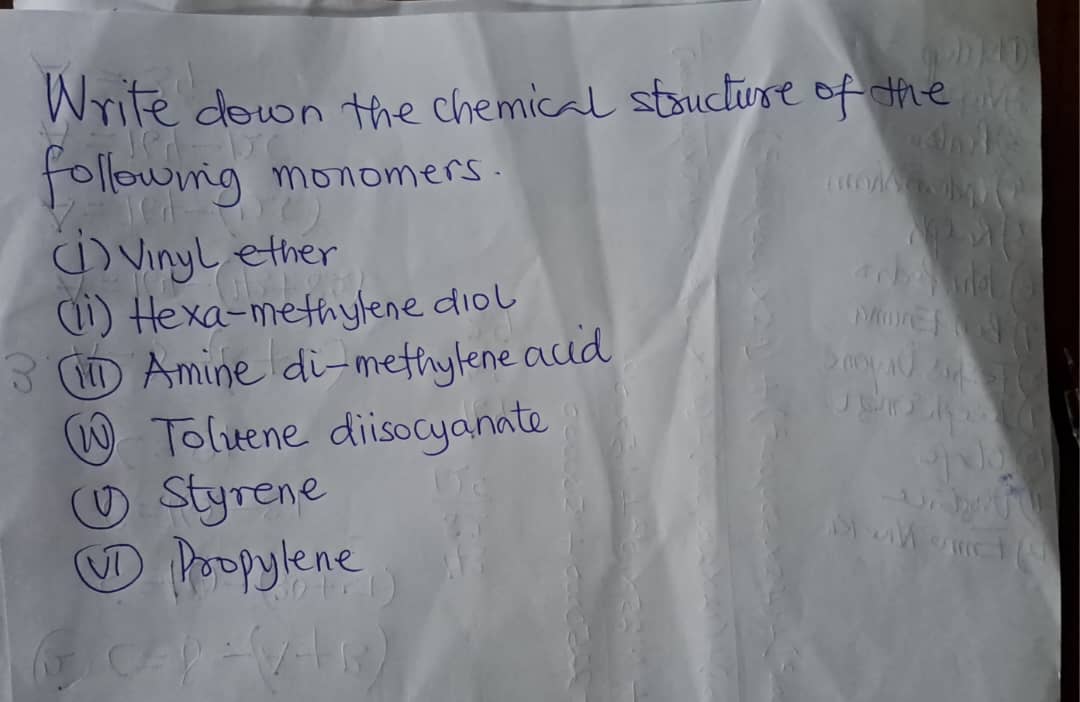 Write down the chemical structure of the
following monomers.
(i) Vinyl ether
(ii) Hexa-methylene diol
(iii) Amine di-methylene acid
(iv) Toluene diisocyanate
(v) Styrene
(vi) Propylene